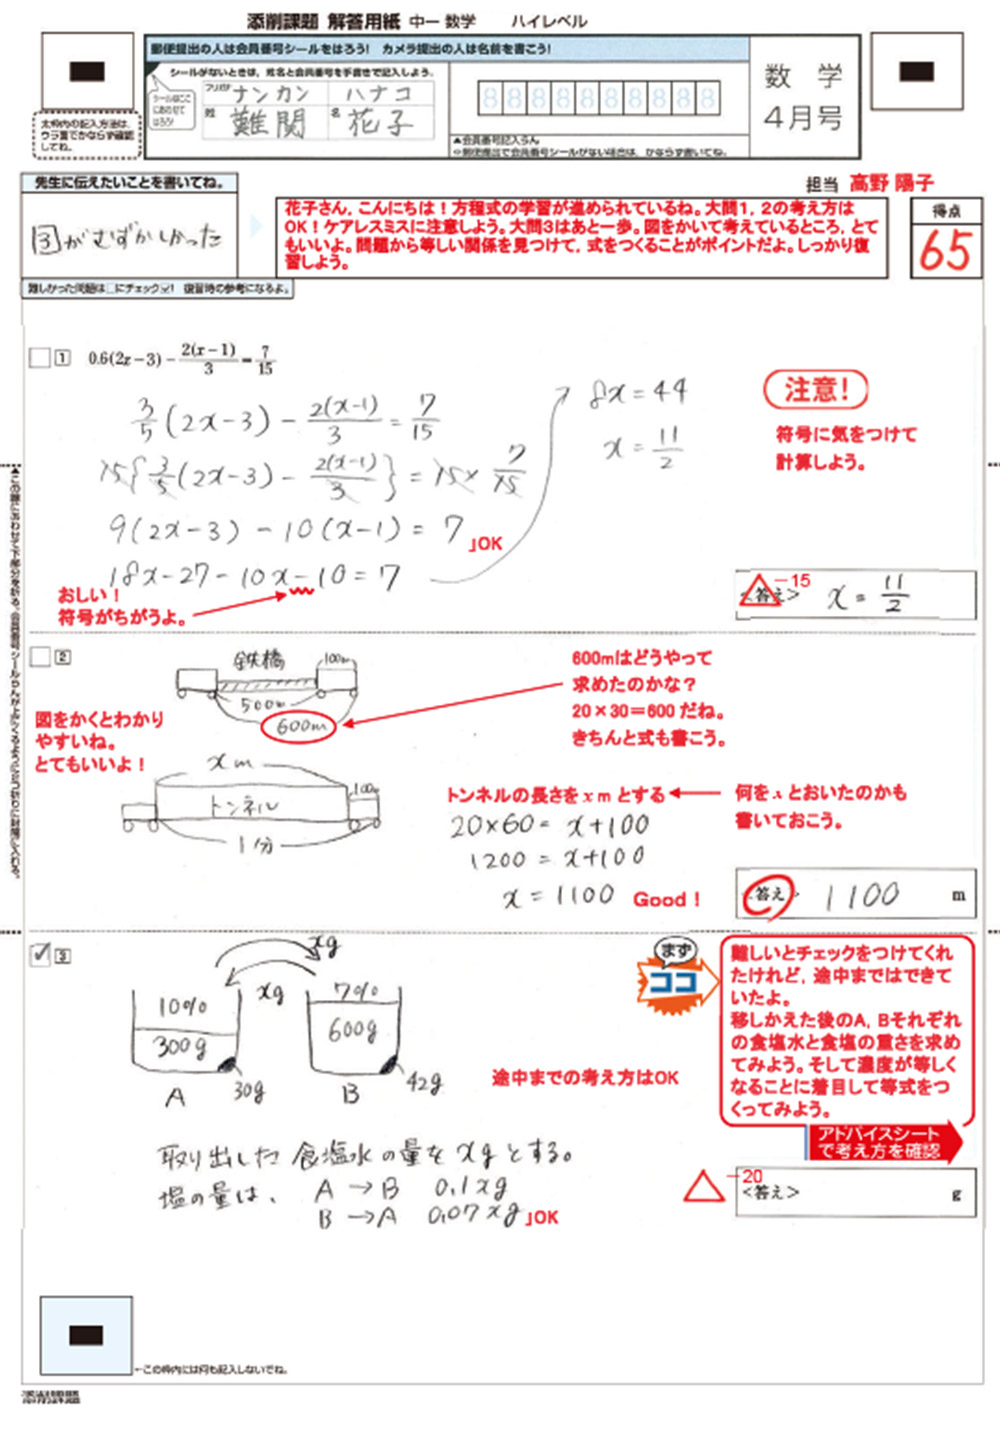 添削課題 解答用紙 中一 数学 ハイレベル
郵便提出の人は会員番号シールをはろう! カメラ提出の人は名前を書こう!
シールがないときは、姓名と会員番号を手書きで記入しよう。
シールはここにあわせてはろう!
フリガナ ナンカン ハナコ
姓 難関 名 花子
▲会員番号記入らん
※郵便提出で会員番号シールがない場合は、かならず書いてね。
数学
4月号
太枠内の記入方法は、
ウラ面でかならず確認
してね。
先生に伝えたいことを書いてね。
3がむずかしかった
担当 高野 陽子
花子さん,こんにちは!方程式の学習が進められているね。大問1,2の考え方は
OK!ケアレスミスに注意しよう。大問3はあと一歩。図をかいて考えているところ,とて
もいいよ。問題から等しい関係を見つけて,式をつくることがポイントだよ。しっかり復
習しよう。
得点
65
難しかった問題は□にチェック☑! 復習時の参考になるよ。
1 0.6(2x−3)−2(x−1)/3=7/15
3/5(2x−3)−2(x−1)/3=7/15
15{3/5(2x−3)−2(x−1)/3}=15×7/15
9(2x−3)−10(x−1)=7 」OK
18x−27−10x−10=7
8x=44
x=11/2
おしい!
符号がちがうよ。
注意!
符号に気をつけて
計算しよう。
−15
<答え> x=11/2
2
鉄橋 100m
500m
600m
図をかくとわかり
やすいね。
とてもいいよ!
xm
トンネル 100m
1分
600mはどうやって
求めたのかな?
20×30=600だね。
きちんと式も書こう。
トンネルの長さをxmとする
何をxとおいたのかも
書いておこう。
20×60=x+100
1200=x+100
x=1100 Good!
<答え> 1100 m
✓3
xg
xg
10% 7%
300g 600g
30g 42g
A B
途中までの考え方はOK
まず
ココ
難しいとチェックをつけてくれ
たけれど,途中まではできて
いたよ。
移しかえた後のA,Bそれぞれ
の食塩水と食塩の重さを求め
てみよう。そして濃度が等しく
なることに着目して等式をつ
くってみよう。
アドバイスシート
で考え方を確認
取り出した食塩水の量をxgとする。
塩の量は、 A→B 0.1xg
B→A 0.07xg 」OK
−20
<答え> g
←この枠内には何も記入しないでね。